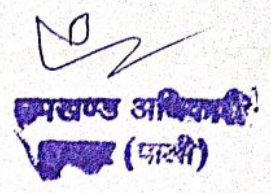 उपखण्ड अधिकारी
(पाली)